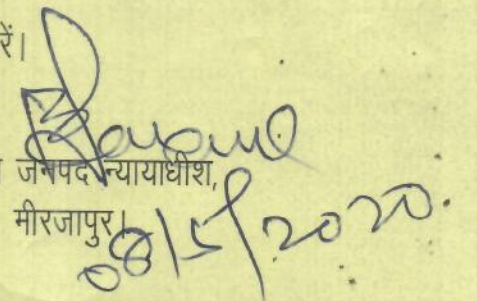 रें।
जनपद न्यायाधीश,
मीरजापुर।
08/5/2020.